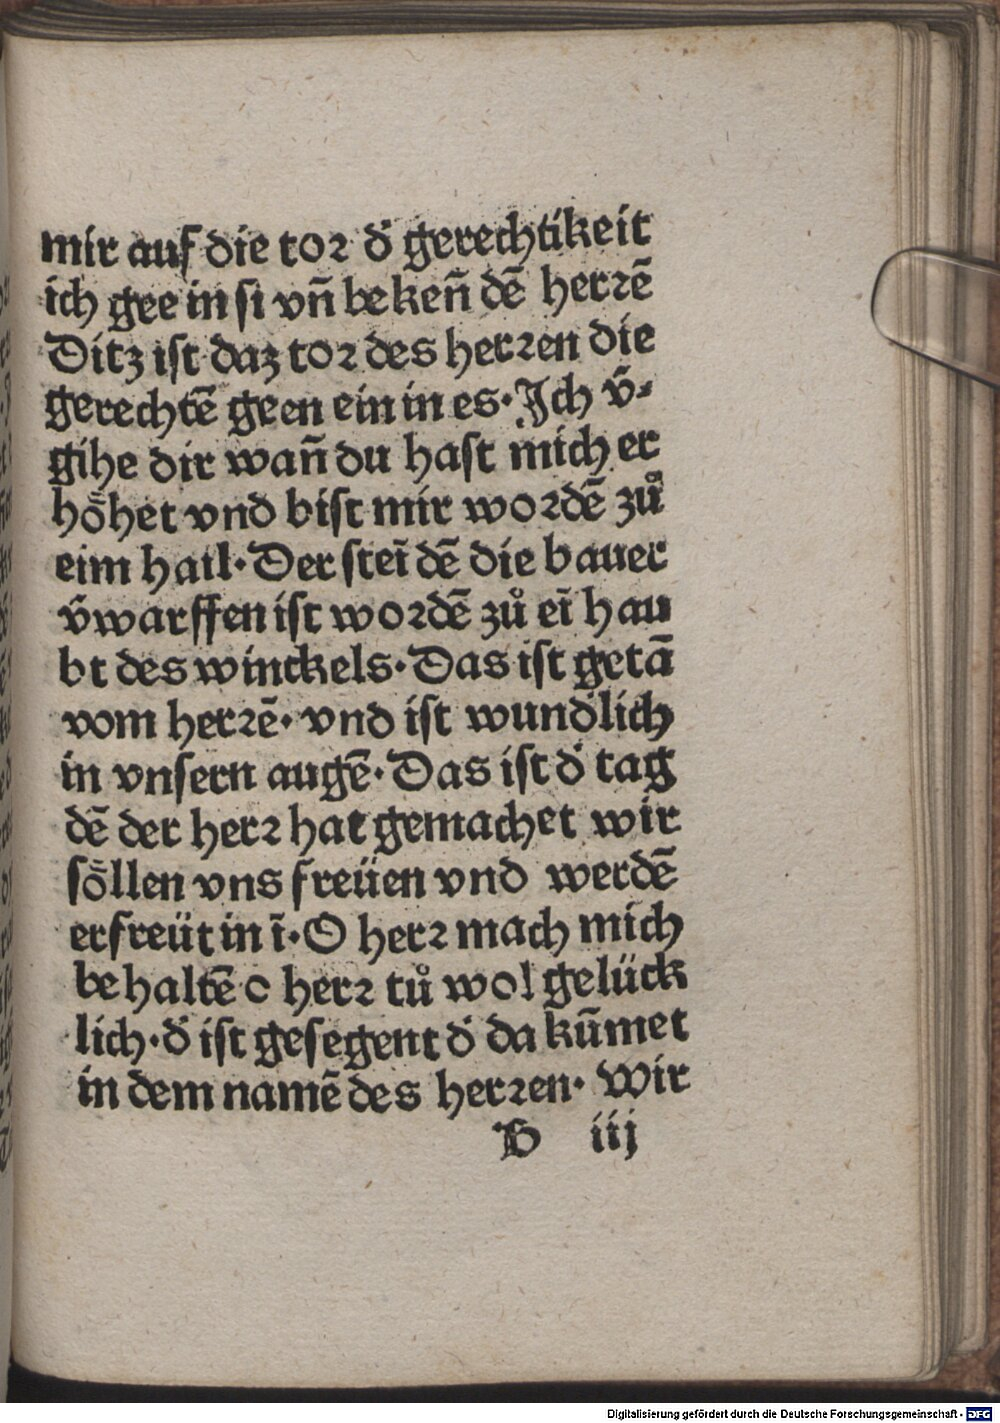 mir auf die tor d̕ gerechtikeit
ich gee in si vn̄ beken̄ dē herrē
Ditz ist daz tor des herren die
gerechtē geen ein in es· Jch v̄⸗
gihe dir wan̄ du hast mich er
hoͤhet vnd bist mir wordē zů
eim hail· Der steī dē die bauer
v̄warffen ist wordē zů eī hau
bt des winckels· Das ist getā
vom herrē· vnd ist wund̕lich
in vnsern augē· Das ist d̕ tag
dē der herr hat gemachet wir
soͤllen vns freüen vnd werdē
erfreüt in ī· O herr mach mich
behaltē o herr tů wol gelück
lich· d̕ ist gesegent d̕ da kūmet
in dem namē des herren· Wir
B iij
Digitalisierung gefördert durch die Deutsche Forschungsgemeinschaft - DFG